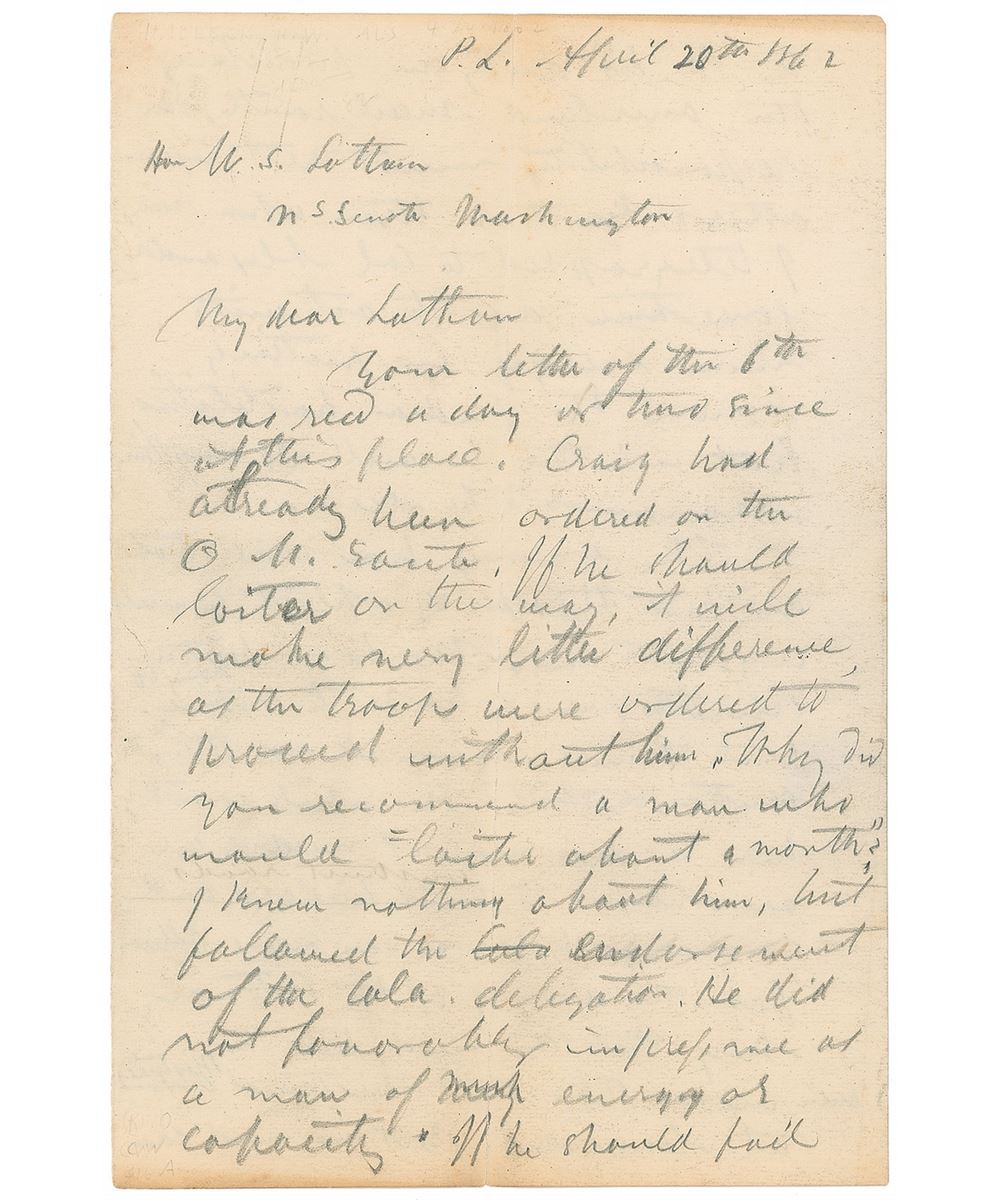 P.L. April 20th 1862
Hon M. S. Latham
U S. Senate Washington
My dear Latham
Your letter of the 6th
was recd a day or two since
at this place. Craig had
already been ordered on the
O M. route. If he should
loiter on the way, it will
make very little difference,
as the troops were ordered to
proceed without him. Why did
you recommend a man who
would "loiter about a month"?
I knew nothing about him, but
followed the endorsement
of the Cala. delegation. He did
not favorably impress me as
a man of much energy or
capacity. If he should fail